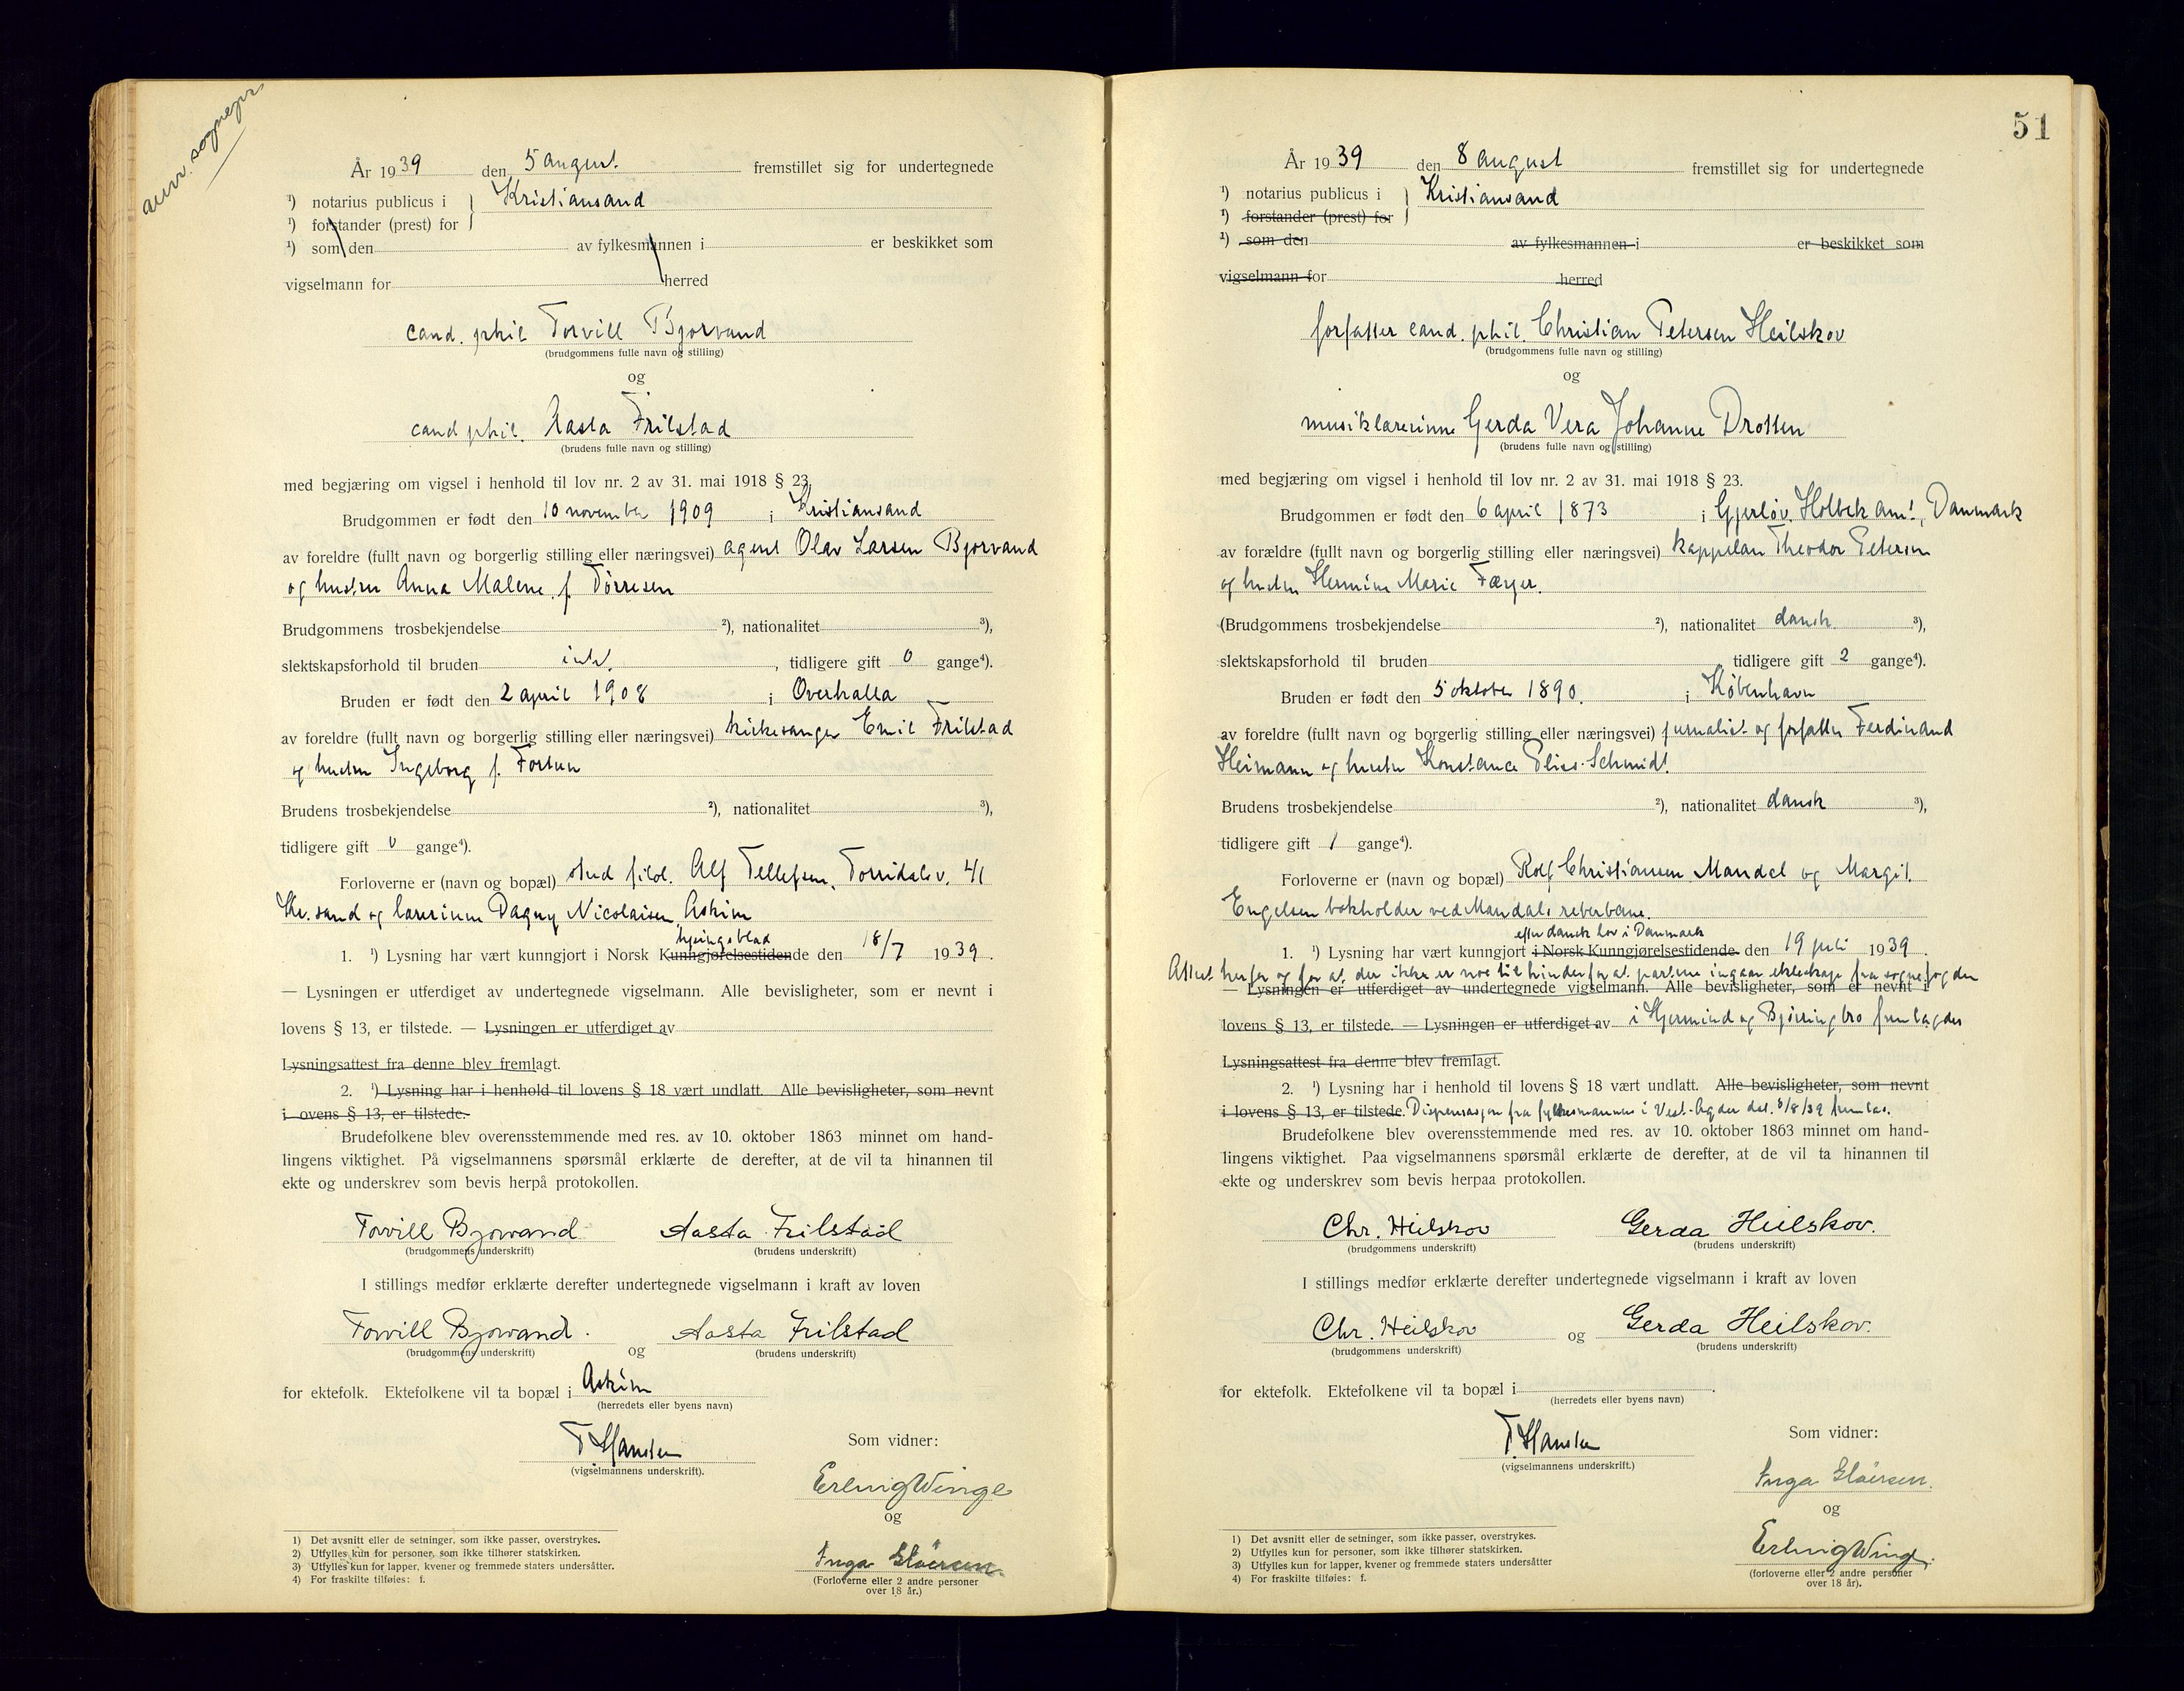 anv. sognepr.
År 1939 den 5 august. fremstillet sig for undertegnede
¹) notarius publicus i } Kristiansand
¹) forstander (prest) for
¹) som den av fylkesmannen i er beskikket som
vigselmann for herred
cand. phil Torvill Bjorvand
(brudgommens fulle navn og stilling)
og
cand phil. Aasta Frilstad
(brudens fulle navn og stilling)
med begjæring om vigsel i henhold til lov nr. 2 av 31. mai 1918 § 23.
Brudgommen er født den 10 november 1909 i Kristiansand
av foreldre (fullt navn og borgerlig stilling eller næringsvei) agent Olav Larsen Bjorvand
og hustru Anna Malene f. Tørresen
Brudgommens trosbekjendelse ²), nationalitet ³),
slektskapsforhold til bruden intet, tidligere gift 0 gange⁴).
Bruden er født den 2 april 1908 i Overhalla
av foreldre (fullt navn og borgerlig stilling eller næringsvei) kirkesanger Emil Frilstad
og hustru Ingeborg f. Fortun
Brudens trosbekjendelse ²), nationalitet ³),
tidligere gift 0 gange⁴).
Forloverne er (navn og bopæl) stud filol. Alf Tellefsen, Torridalsv. 41
Kr.sand og lærerinne Dagny Nicolaisen Askim
hyringsblad
1. ¹) Lysning har vært kunngjort i Norsk Kunngjørelsestidende den 18/7 1939.
— Lysningen er utferdiget av undertegnede vigselmann. Alle bevisligheter, som er nevnt i
lovens § 13, er tilstede. — Lysningen er utferdiget av
Lysningsattest fra denne blev fremlagt.
2. ¹) Lysning har i henhold til lovens § 18 vært undlatt. Alle bevisligheter, som nevnt
i lovens § 13, er tilstede.
Brudefolkene blev overensstemmende med res. av 10. oktober 1863 minnet om hand-
lingens viktighet. På vigselmannens spørsmål erklærte de derefter, at de vil ta hinannen til
ekte og underskrev som bevis herpå protokollen.
Torvill Bjorvand Aasta Frilstad
(brudgommens underskrift) (brudens underskrift)
I stillings medfør erklærte derefter undertegnede vigselmann i kraft av loven
Torvill Bjorvand. Aasta Frilstad
(brudgommens underskrift) og (brudens underskrift)
for ektefolk. Ektefolkene vil ta bopæl i Askim
(herredets eller byens navn)
T Hansen
(vigselmannens underskrift).
Som vidner:
Erling Winge
og
Inga Gløersen.
(Forloverne eller 2 andre personer
over 18 år.)
1) Det avsnitt eller de setninger, som ikke passer, overstrykes.
2) Utfylles kun for personer, som ikke tilhører statskirken.
3) Utfylles kun for lapper, kvener og fremmede staters undersåtter.
4) For fraskilte tilføies: f.
51
År 1939 den 8 august fremstillet sig for undertegnede
¹) notarius publicus i } Kristiansand
¹) forstander (prest) for
¹) som den av fylkesmannen i er beskikket som
vigselmann for herred
forfatter cand. phil. Christian Petersen Heilskov
(brudgommens fulle navn og stilling)
og
musiklærerinne Gerda Vera Johanne Drotten
(brudens fulle navn og stilling)
med begjæring om vigsel i henhold til lov nr. 2 av 31. mai 1918 § 23.
Brudgommen er født den 6 april 1873 i Gjerløv, Holbek amt, Danmark
av forældre (fullt navn og borgerlig stilling eller næringsvei) kappelan Theodor Petersen
og hustru Hermine Marie Færjer.
(Brudgommens trosbekjendelse ²), nationalitet dansk ³),
slektskapsforhold til bruden , tidligere gift 2 gange⁴).
Bruden er født den 5 oktober 1890. i København
av foreldre (fullt navn og borgerlig stilling eller næringsvei) journalist og forfatter Ferdinand
Heimann og hustru Konstance Elise Schmidt.
Brudens trosbekjendelse ²), nationalitet dansk ³),
tidligere gift 1 gange⁴).
Forloverne er (navn og bopæl) Rolf Christiansen Mandal og Margit
Engelsen bokholder ved Mandals reberbane.
efter dansk lov i Danmark
1. ¹) Lysning har vært kunngjort i Norsk Kunngjørelsestidende. den 19 juli 1939.
Attest herfor og for at der ikke er noe til hinder for at partene ingaar ekteskap fra sognefogden
— Lysningen er utferdiget av undertegnede vigselmann. Alle bevisligheter, som er nevnt i
lovens § 13, er tilstede. — Lysningen er utferdiget av i Hjermind og Bjerringbro fremlagdes
Lysningsattest fra denne blev fremlagt.
2. ¹) Lysning har i henhold til lovens § 18 vært undlatt. Alle bevisligheter, som nevnt
i lovens § 13, er tilstede. Dispensasjon fra fylkesmannen i Vest-Agder dat. 8/8/39 fremlas.
Brudefolkene blev overensstemmende med res. av 10. oktober 1863 minnet om hand-
lingens viktighet. Paa vigselmannens spørsmål erklærte de derefter, at de vil ta hinannen til
ekte og underskrev som bevis herpaa protokollen.
Chr. Heilskov Gerda Heilskov.
(brudgommens underskrift) (brudens underskrift)
I stillings medfør erklærte derefter undertegnede vigselmann i kraft av loven
Chr. Heilskov og Gerda Heilskov.
(brudgommens underskrift) (brudens underskrift)
for ektefolk. Ektefolkene vil ta bopæl i .
(herredets eller byens navn)
T Hansen
(vigselmannens underskrift.)
Som vidner:
Inga Gløersen.
og
Erling Winge.
(forloverne eller 2 andre personer
over 18 år).
1) Det avsnitt eller de setninger, som ikke passer, overstrykes.
2) Utfylles kun for personer, som ikke tilhører statskirken.
3) Utfylles kun for lapper, kvener og fremmede staters undersåtter
4) For fraskilte tilføies: f.